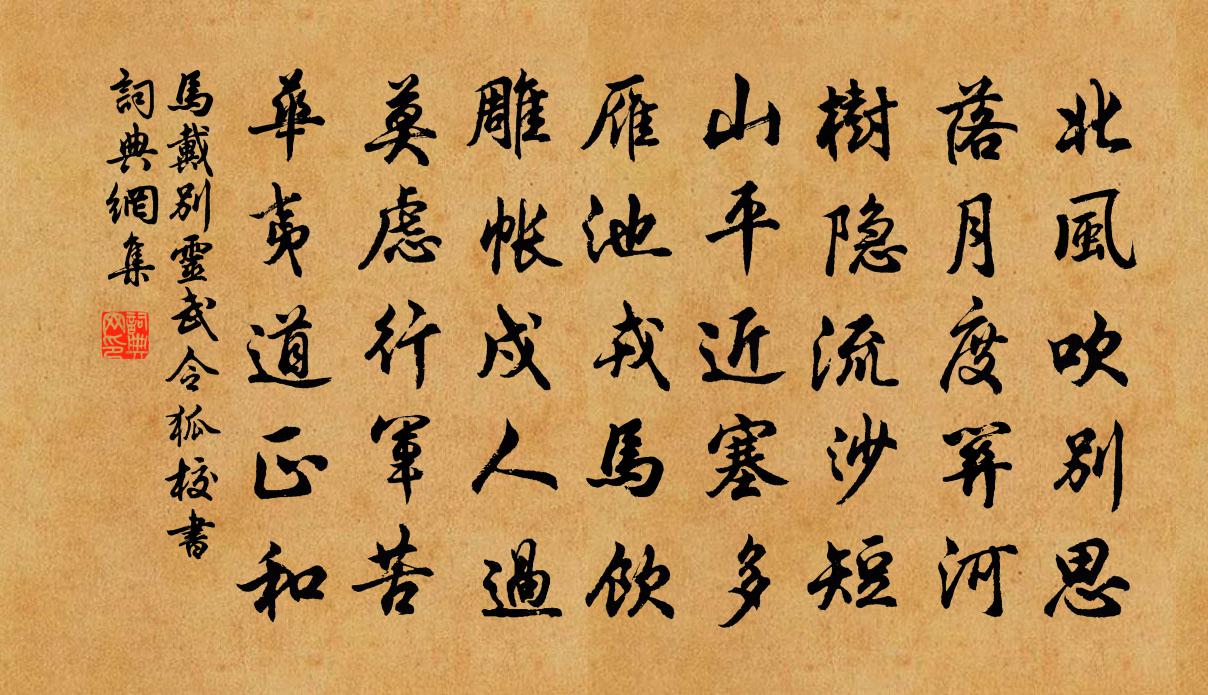 北風吹別思
落月度關河
樹隐流沙短
山平近塞多
雁池戎馬飲
雕帳戍人過
莫慮行軍苦
華夷道正和
馬戴別靈武令狐校書
詞典網集
詞典网印